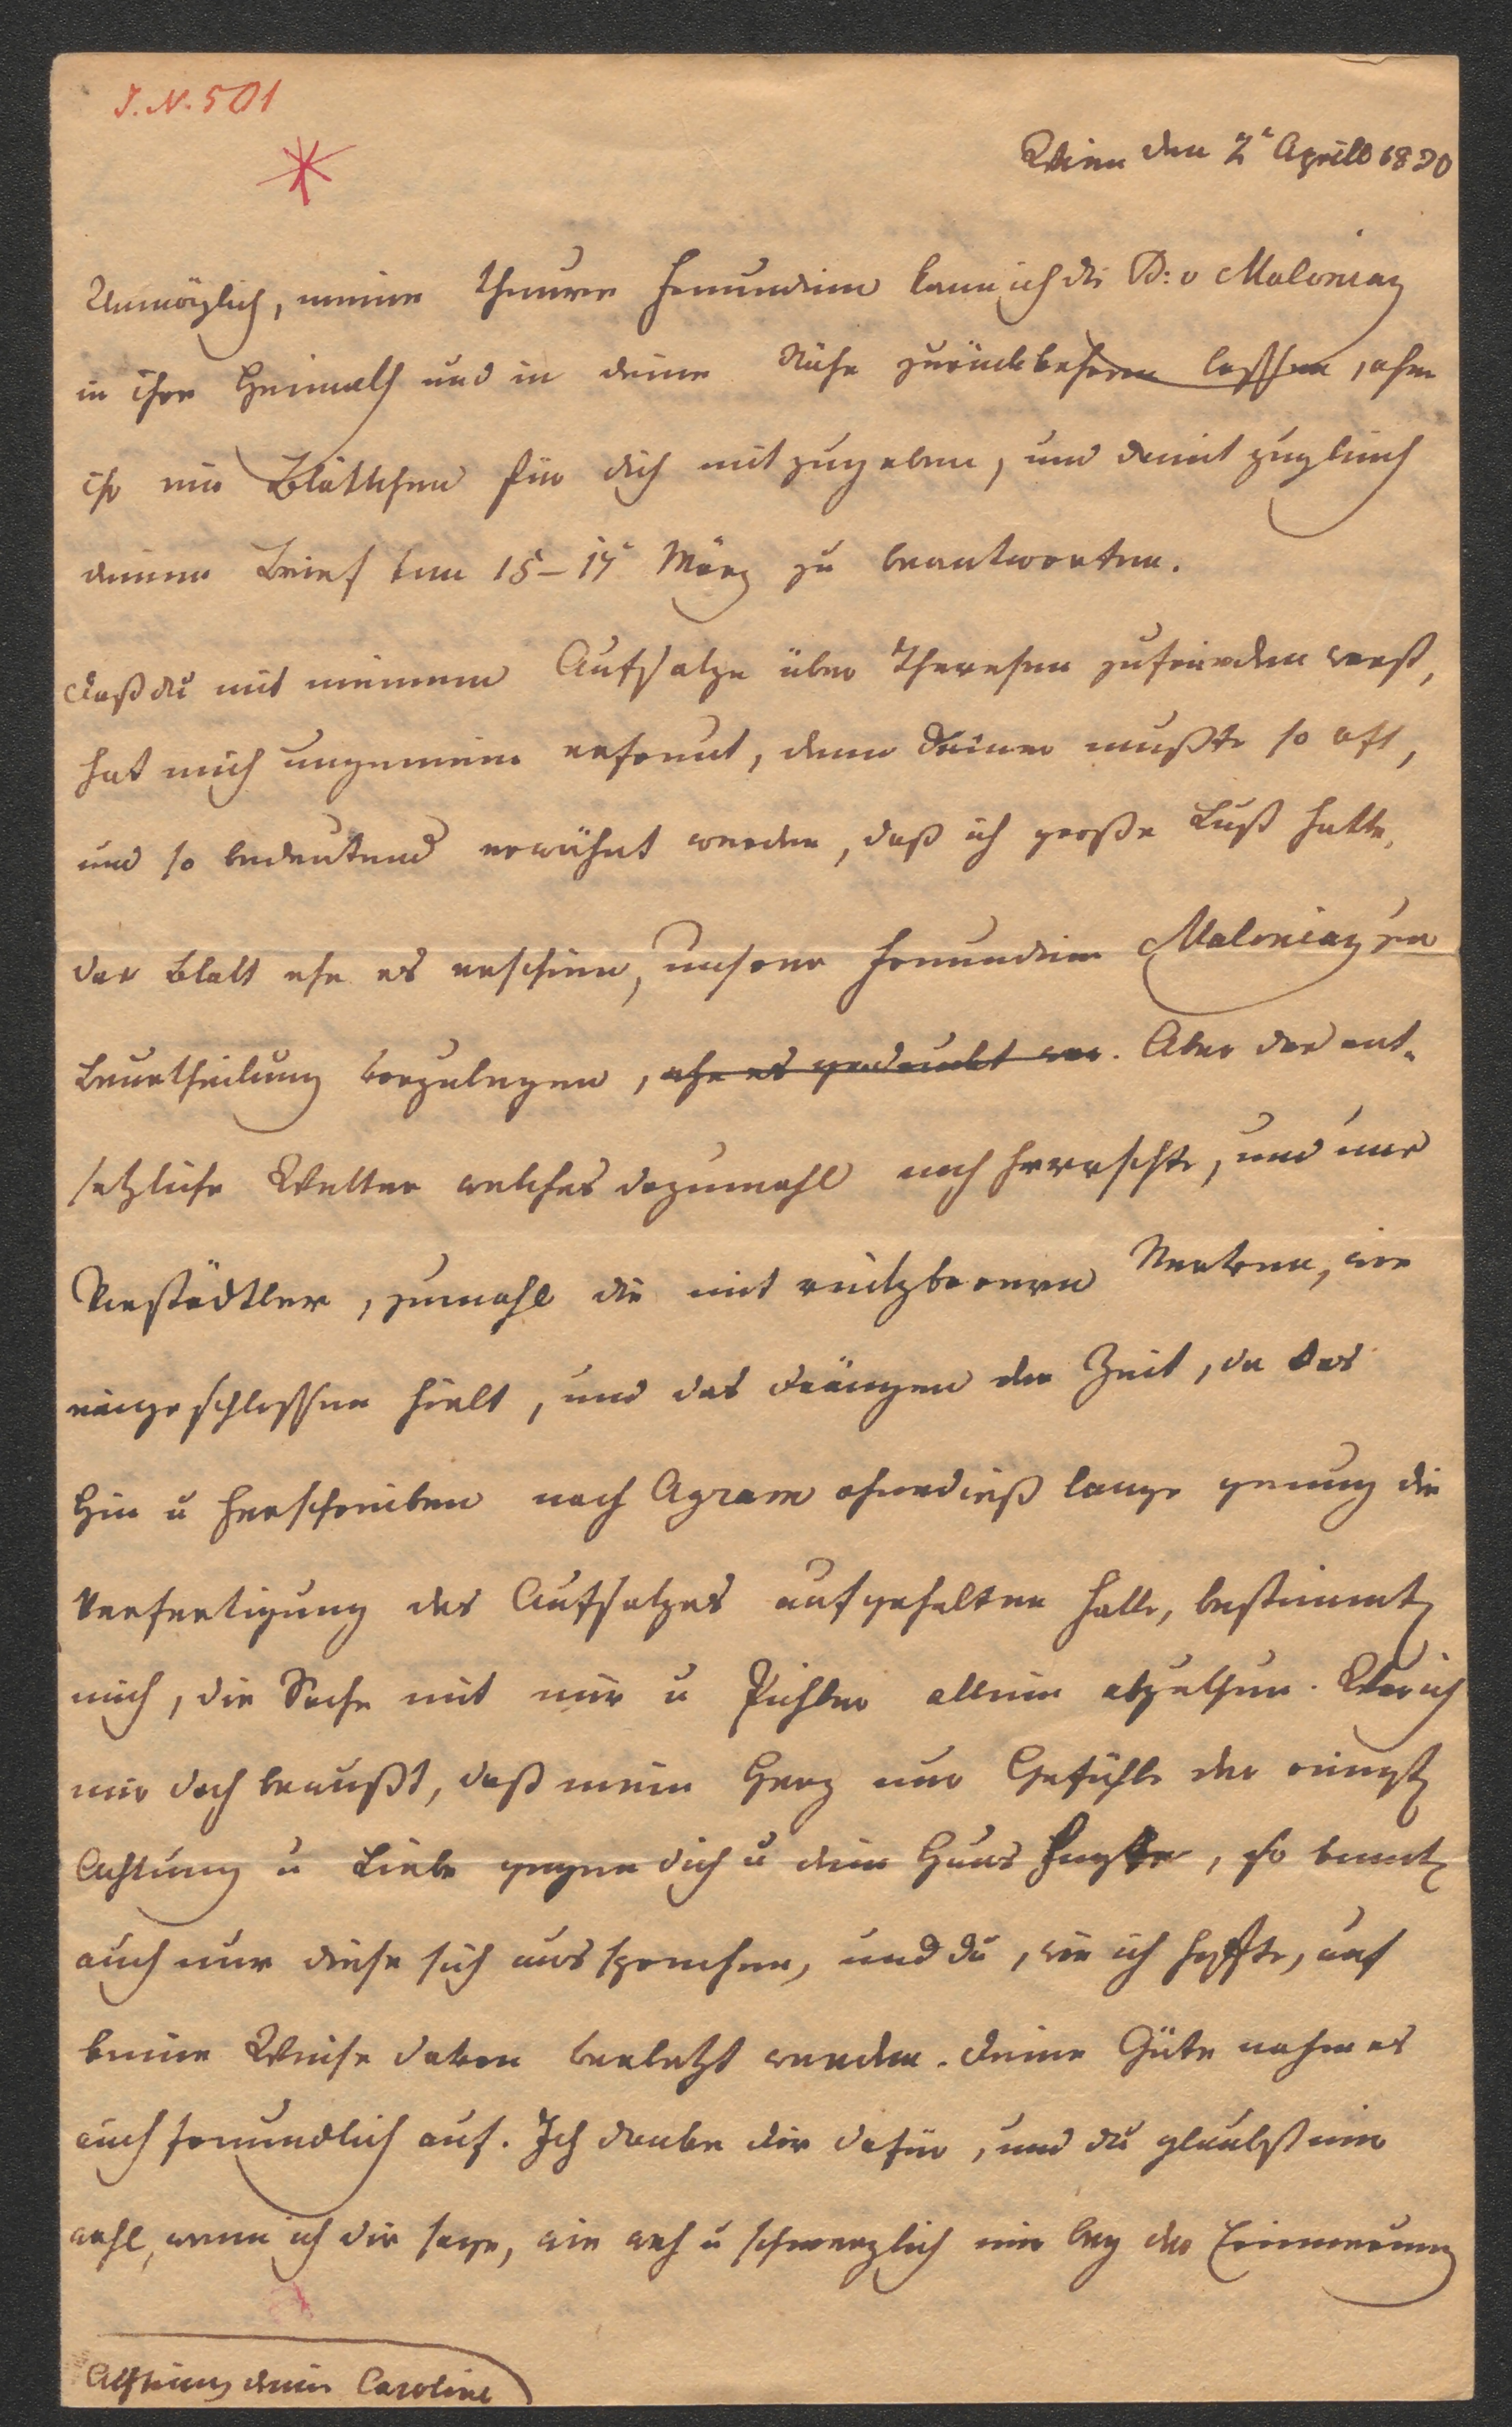 I. N. 501
Wien den 2t April 1830
Unmöglich, meine theure Freundinn kann ich die B: v Maloniay
in ihre Heimath und in deine Nähe zurückkehren lassen, ohne
ihr ein Blättchen für dich mitzugeben, und damit zugleich
deinen Brief vom 15 – 17t März zu beantworten.
Daß du mit meinem Aufsatze über Theresen zufrieden warst,
hat mich ungemein erfreut, denn Deiner mußte so oft,
und so bedeutend erwähnt werden, daß ich große Lust hatte,
das Blatt ehe es erschien, unserer Freundinn Maloniay
Beurtheilung vorzulegen, ehe es gedruckt war. Aber das ent-
setzliche Wetter welches dazumahl noch herrschte, und uns
Vorstädtler, zumahl die mit reitzbaren Nerven, wie
eingeschlossen hielt, und das Drängen der Zeit, da das
Hin u Herschreiben nach Agram ohnedieß lange genug die
Verfertigung des Aufsatzes aufgehalten hatte, bestimmte
mich, die Sache mit mir u Pichler allein abzuthun. War ich
mir doch bewußt, daß mein Herz nur Gefühle der innigst
Achtung u Liebe gegen dich u dein Haus hegte, so konnt
auch nur diese sich aussprechen, und du, wie ich hoffte, auf
keine Weise davon verletzt werden. Deine Güte nahm es
auch freundlich auf. Ich danke dir dafür, und du glaubst mir
wohl, wenn ich dir sage, wie weh u schmerzlich mir bey der Erinnerung
deine Caroline